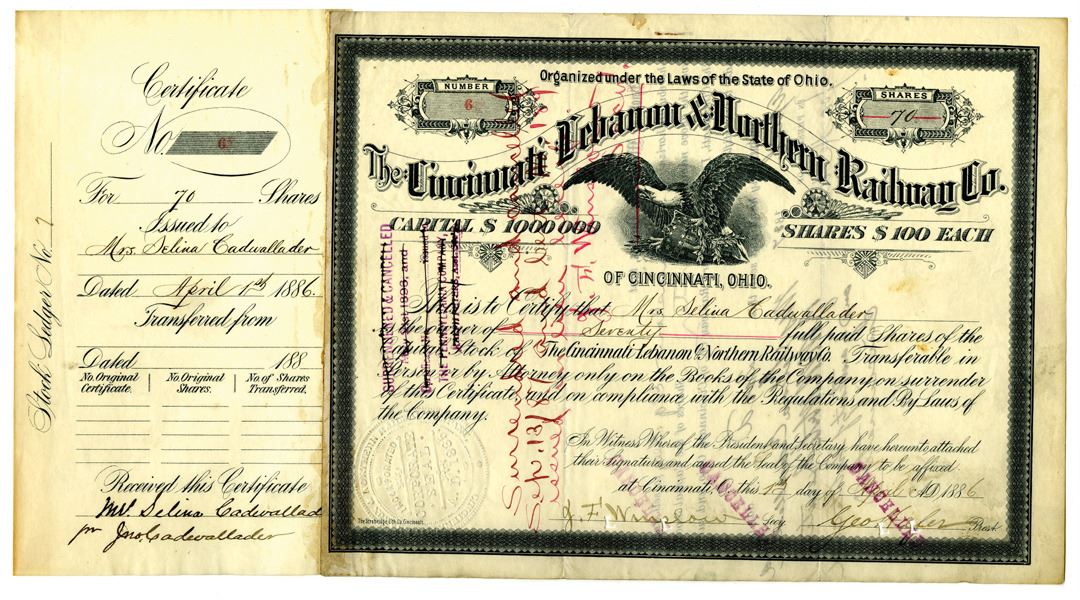 Certificate
No. 6
For 70 Shares
Issued to
Mrs. Selina Cadwallader
Dated April 1st 1886.
Transferred from
Dated 188
No. Original Certificate.
No. Original Shares.
No. of Shares Transferred.
Received this Certificate
Mrs. Selina Cadwallad
pr Jno. Cadwallader
Stock Ledger No. 7
Organized under the Laws of the State of Ohio.
NUMBER
6
SHARES
70
The Cincinnati Lebanon & Northern Railway Co.
CAPITAL $ 1000 000
SHARES $ 100 EACH
OF CINCINNATI, OHIO.
This is to Certify that Mrs. Selina Cadwallader
is the owner of Seventy full paid Shares of the
Capital Stock of The Cincinnati Lebanon & Northern Railway Co. Transferable in
Person or by Attorney only on the Books of the Company on surrender
of this Certificate, and on compliance with the Regulations and By Laws of
the Company.
In Witness Whereof the President and Secretary have hereunto attached
their signatures and caused the Seal of the Company to be affixed
at Cincinnati, O. this 1st day of April AD 1886
J. F. Winslow Secy.
Pres't.
The Strobridge Lith. Co. Cincinnati.
SURRENDERED & CANCELLED
1896, and
THE PENNSYLVANIA COMPANY,
Surrendered and cancelled
Sep. 13/
issued
CANCELLED
CANCELLED
CANCELLED